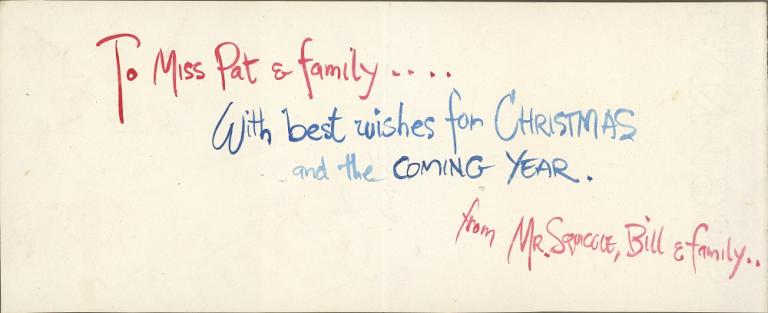 To Miss Pat & family ....
With best wishes for CHRISTMAS
and the COMING YEAR.
from MR. SQUIGGLE, Bill & family..